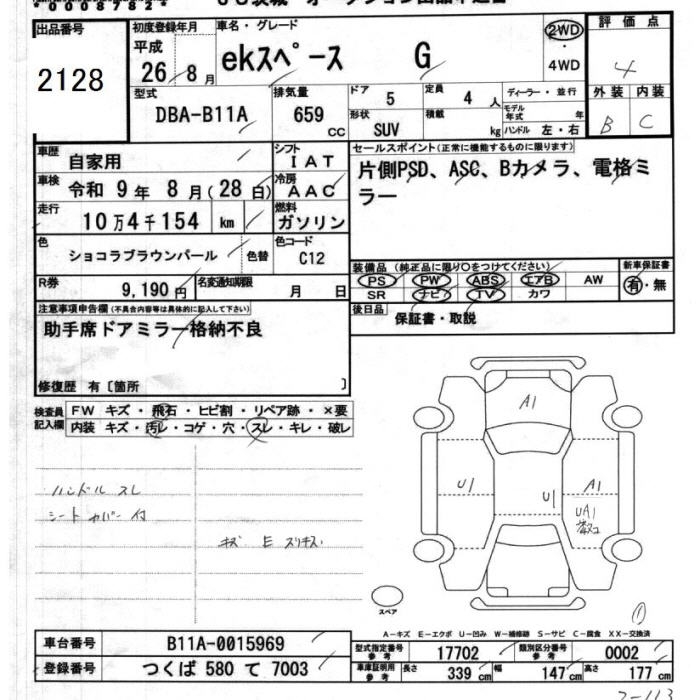 出品番号
2128
初度登録年月
平成
26年 8月
車名・グレード
ekスペース G
2WD
・
4WD
評価点
4
外装 内装
B C
型式
DBA-B11A
排気量
659 CC
ドア 5
定員 4人
形状 SUV
積載 kg
ディーラー・並行
モデル年式 年
ハンドル 左・右
車歴 自家用
シフト IAT
車検 令和 9年 8月(28日)
冷房 AAC
走行 10万4千154 km
燃料 ガソリン
色 ショコラブラウンパール 色替
色コード C12
R券 9,190円
名変通知期限 月 日
セールスポイント(正常に機能するものに限ります)
片側PSD、ASC、Bカメラ、電格ミ
ラー
装備品(純正品に限り○をつけてください)
PS PW ABS エアB AW
SR ナビ TV カワ
新車保証書
有・無
後日品 保証書・取説
注意事項申告欄(不具合内容等は具体的に記入して下さい)
助手席ドアミラー格納不良
修復歴 有〔箇所 〕
検査員記入欄
FW キズ・飛石・ヒビ割・リペア跡・×要
内装 キズ・汚レ・コゲ・穴・スレ・キレ・破レ
ハンドル スレ
シート カバー付
キズ E スリキズ
A1
U1
U1
A1
UA1
スペア
①
A-キズ E-エクボ U-凹み W-補修跡 S-サビ C-腐食 XX-交換済
車台番号 B11A-0015969
登録番号 つくば 580 て 7003
型式指定番号参考 17702
類別区分番号参考 0002
車庫証明用参考 長さ 339cm 幅 147cm 高さ 177cm